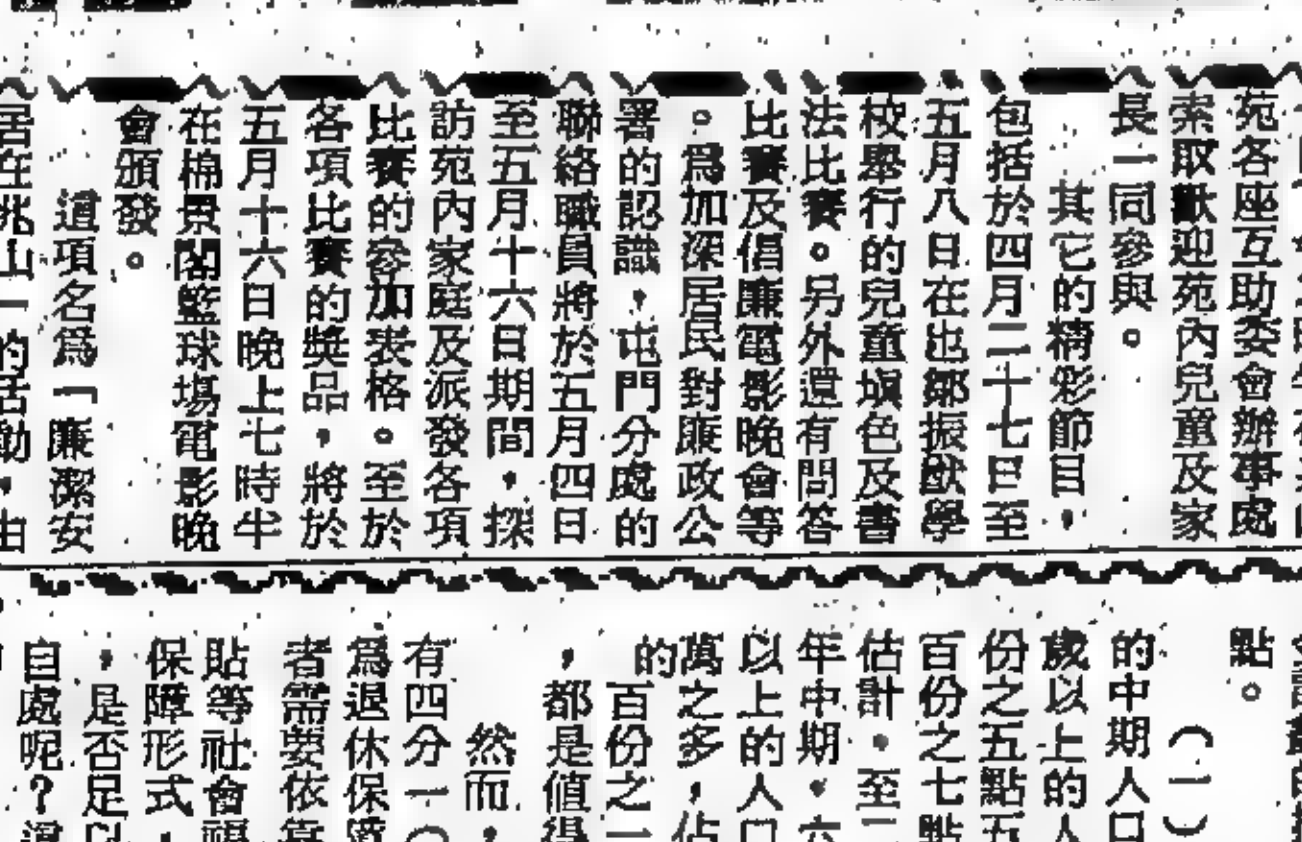 苑各座互助委會辦事處
索取歡迎苑內兒童及家
長一同參與。
其它的精彩節目，
包括於四月二十七日至
五月八日在也鄒振猷學
校舉行的兒童填色及書
法比賽。另外還有問答
比賽及倡廉電影晚會等
。為加深居民對廉政公
署的認識，屯門分處的
聯絡職員將於五月四日
至五月十六日期間，探
訪苑內家庭及派發各項
比賽的參加表格。至於
各項比賽的獎品，將於
五月十六日晚上七時半
在棉景閣籃球場電影晚
會頒發。
這項名為「廉潔安
居在兆山」的活動，由
點。
（一）
的中期人口
歲以上的人
份之五點五
百份之七點
估計。至二
年中期，六
以上的人口
萬之多，佔
的百份之一
，都是值得
然而，
有四分一（
為退休保障
者需要依靠
貼等社會福
保障形式，
，是否足以
自處呢？這